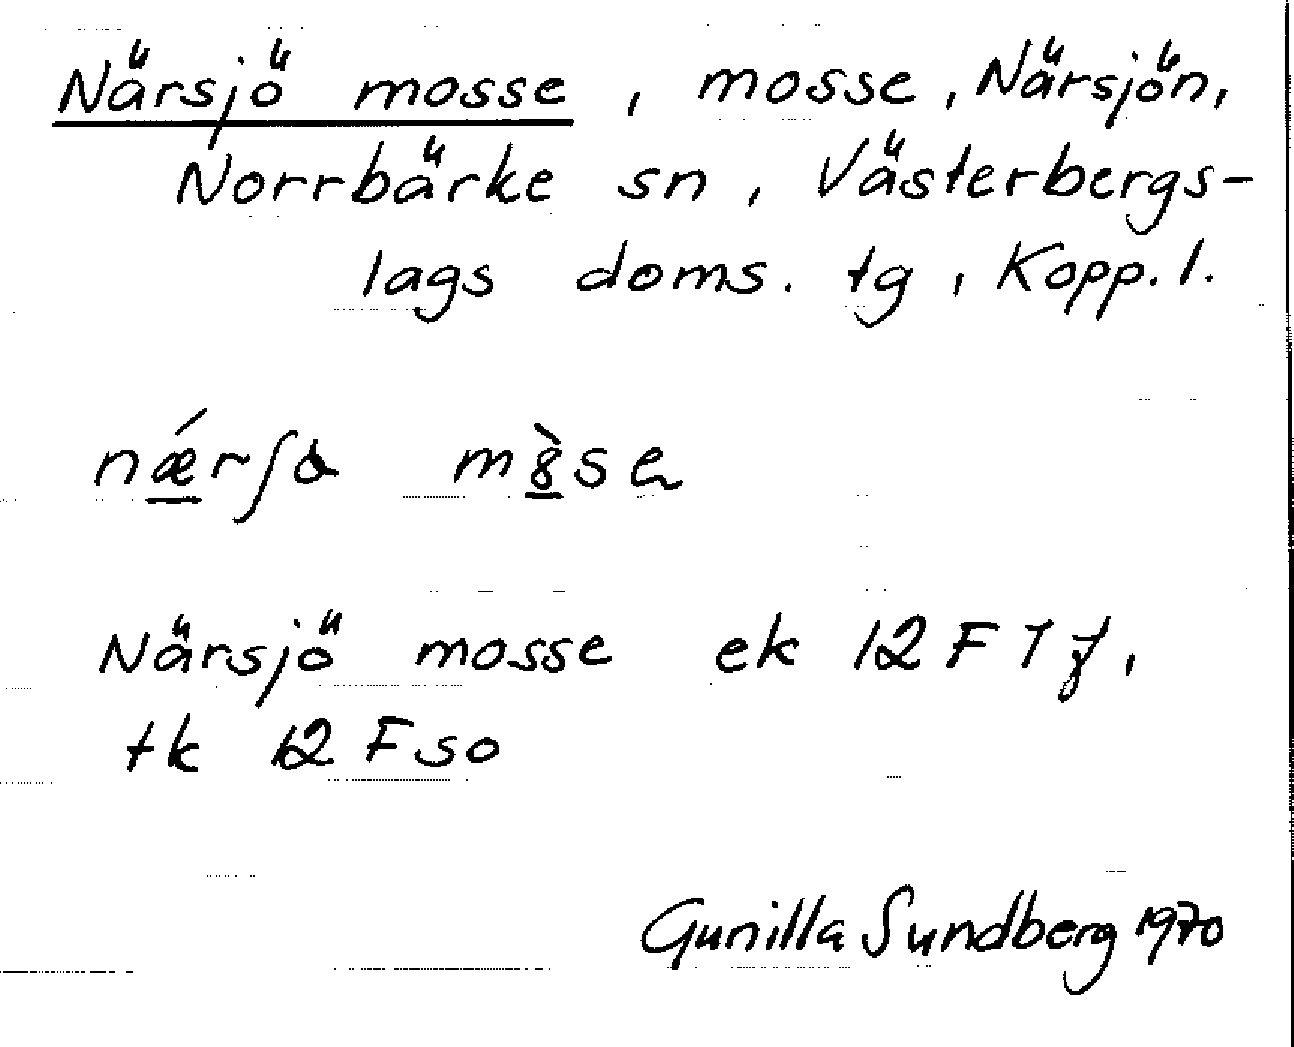 Närsjö mosse, mosse, Närsjön,
Norrbärke sn, Västerbergs-
lags doms. tg, Kopp. l.
Närsjö mosse ek 12 F 7 f,
tk 12 F so
Gunilla Sundberg 1970